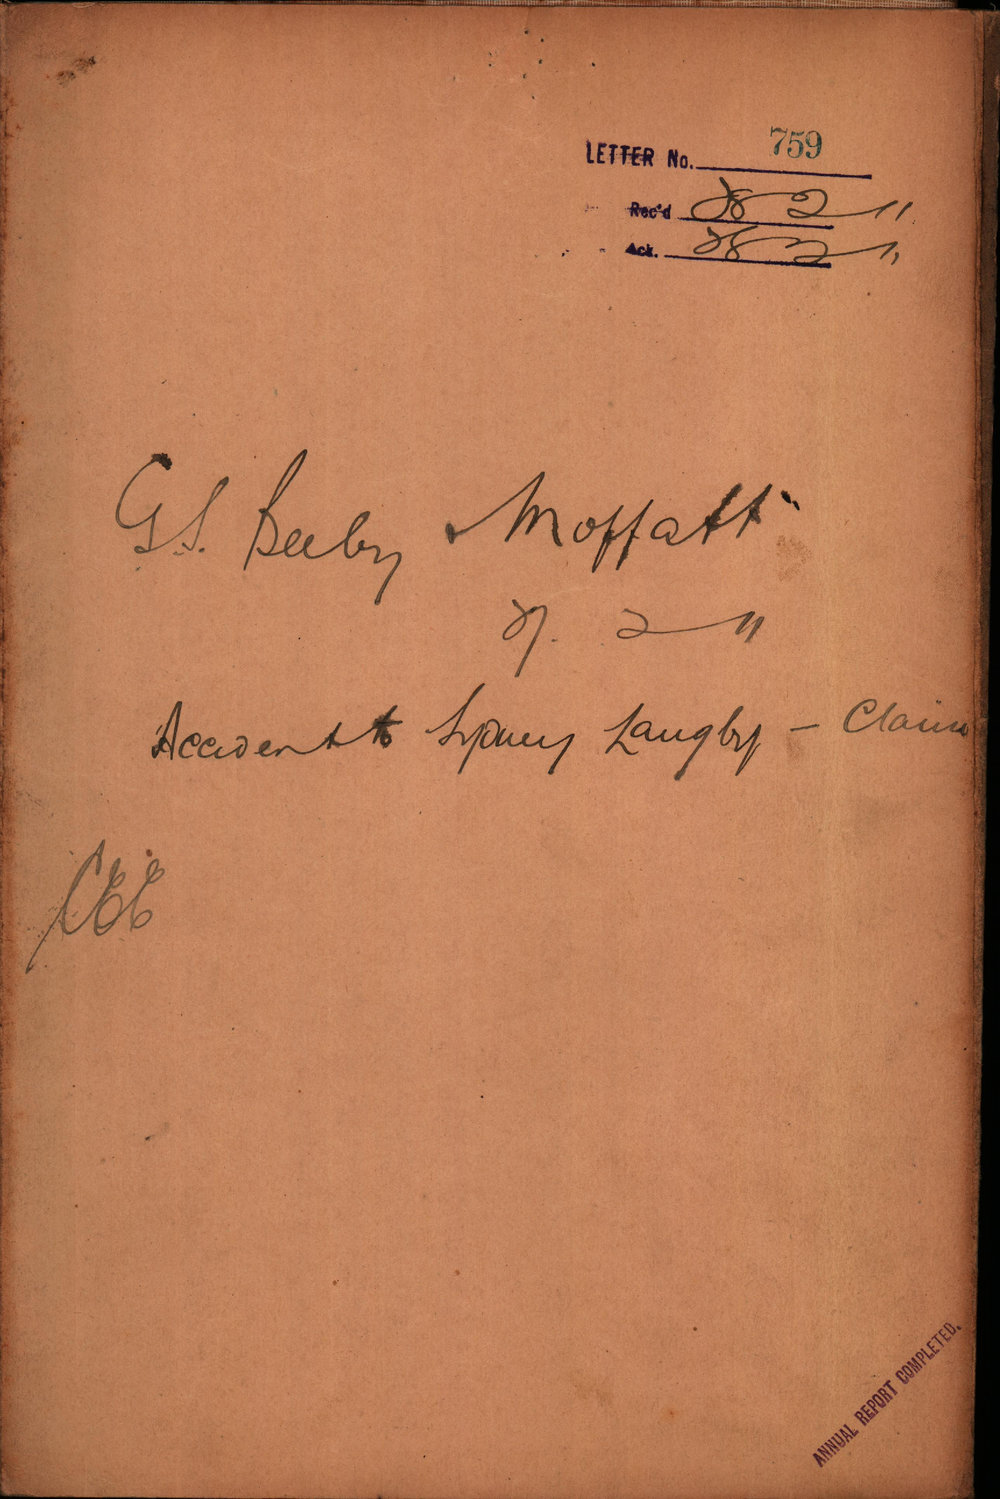 LETTER No. 759
Rec'd 28 2 11
Ack. 28 2 11
G.S. Beeby & Moffatt
27. 2 11
Accident to Sydney Langby - Claim
CEE
ANNUAL REPORT COMPLETED.